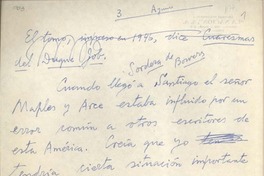 3
El tomo, impreso en 1946, dice Cuaresmas
del Duque Job.
Sordera de Bowers
Cuando llegó a Santiago el señor
Maples y Arce estaba influido por un
error común a otros escritores de
esta América. Creía que yo
tendría cierta situación importante